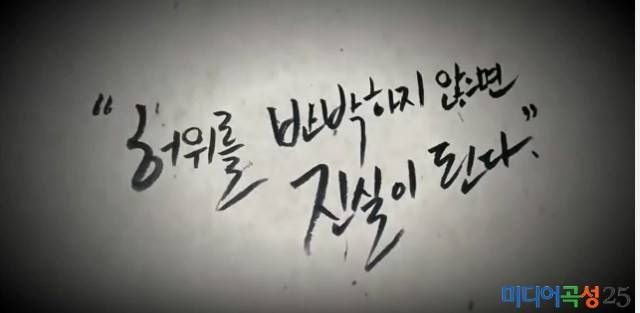 “허위를 반박하지 않으면
진실이 된다.”
미디어곡성25